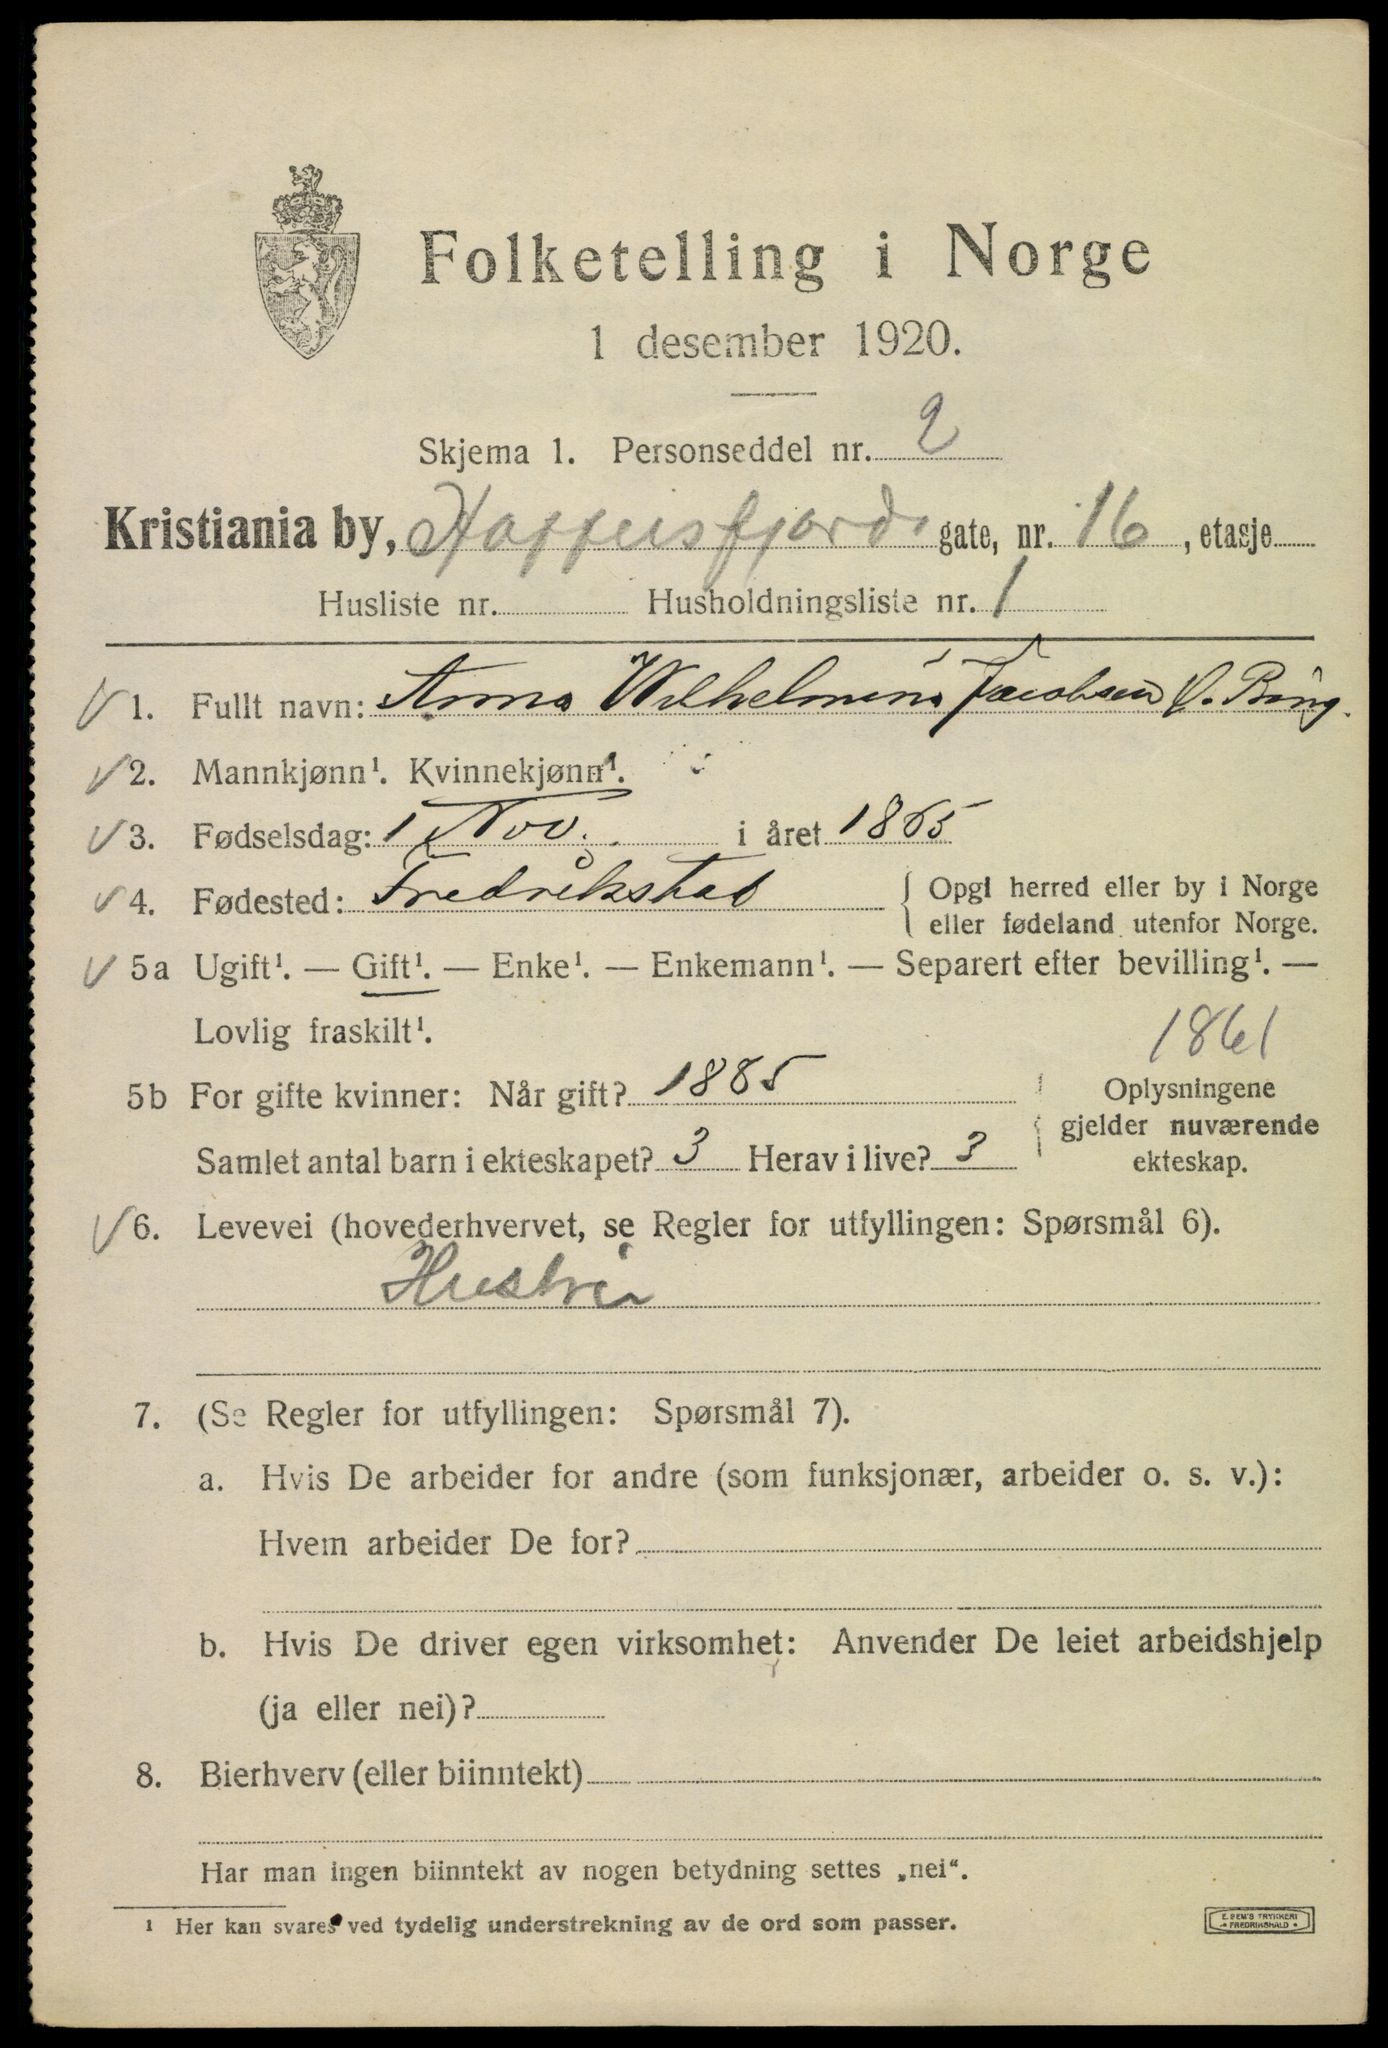 Folketelling i Norge
1 desember 1920.
Skjema 1. Personseddel nr. 2
Kristiania by, gate, nr. 16, etasje
Husliste nr. Husholdningsliste nr. 1
1. Fullt navn: Anna Wilhelmine Jacobsen
2. Mannkjønn¹. Kvinnekjønn¹.
3. Fødselsdag: 1 Nov. i året 1865
4. Fødested: Fredrikstad
Opgi herred eller by i Norge
eller fødeland utenfor Norge.
5a Ugift¹. — Gift¹. — Enke¹. — Enkemann¹. — Separert efter bevilling¹. —
Lovlig fraskilt¹.
1861
5b For gifte kvinner: Når gift? 1885
Samlet antal barn i ekteskapet? 3 Herav i live? 3
Oplysningene
gjelder nuværende
ekteskap.
6. Levevei (hovederhvervet, se Regler for utfyllingen: Spørsmål 6).
Hustru
7. (Se Regler for utfyllingen: Spørsmål 7).
a. Hvis De arbeider for andre (som funksjonær, arbeider o. s. v.):
Hvem arbeider De for?
b. Hvis De driver egen virksomhet: Anvender De leiet arbeidshjelp
(ja eller nei)?
8. Bierhverv (eller biinntekt)
Har man ingen biinntekt av nogen betydning settes „nei“.
¹ Her kan svares ved tydelig understrekning av de ord som passer.
E. SEM'S TRYKKERI
FREDRIKSHALD